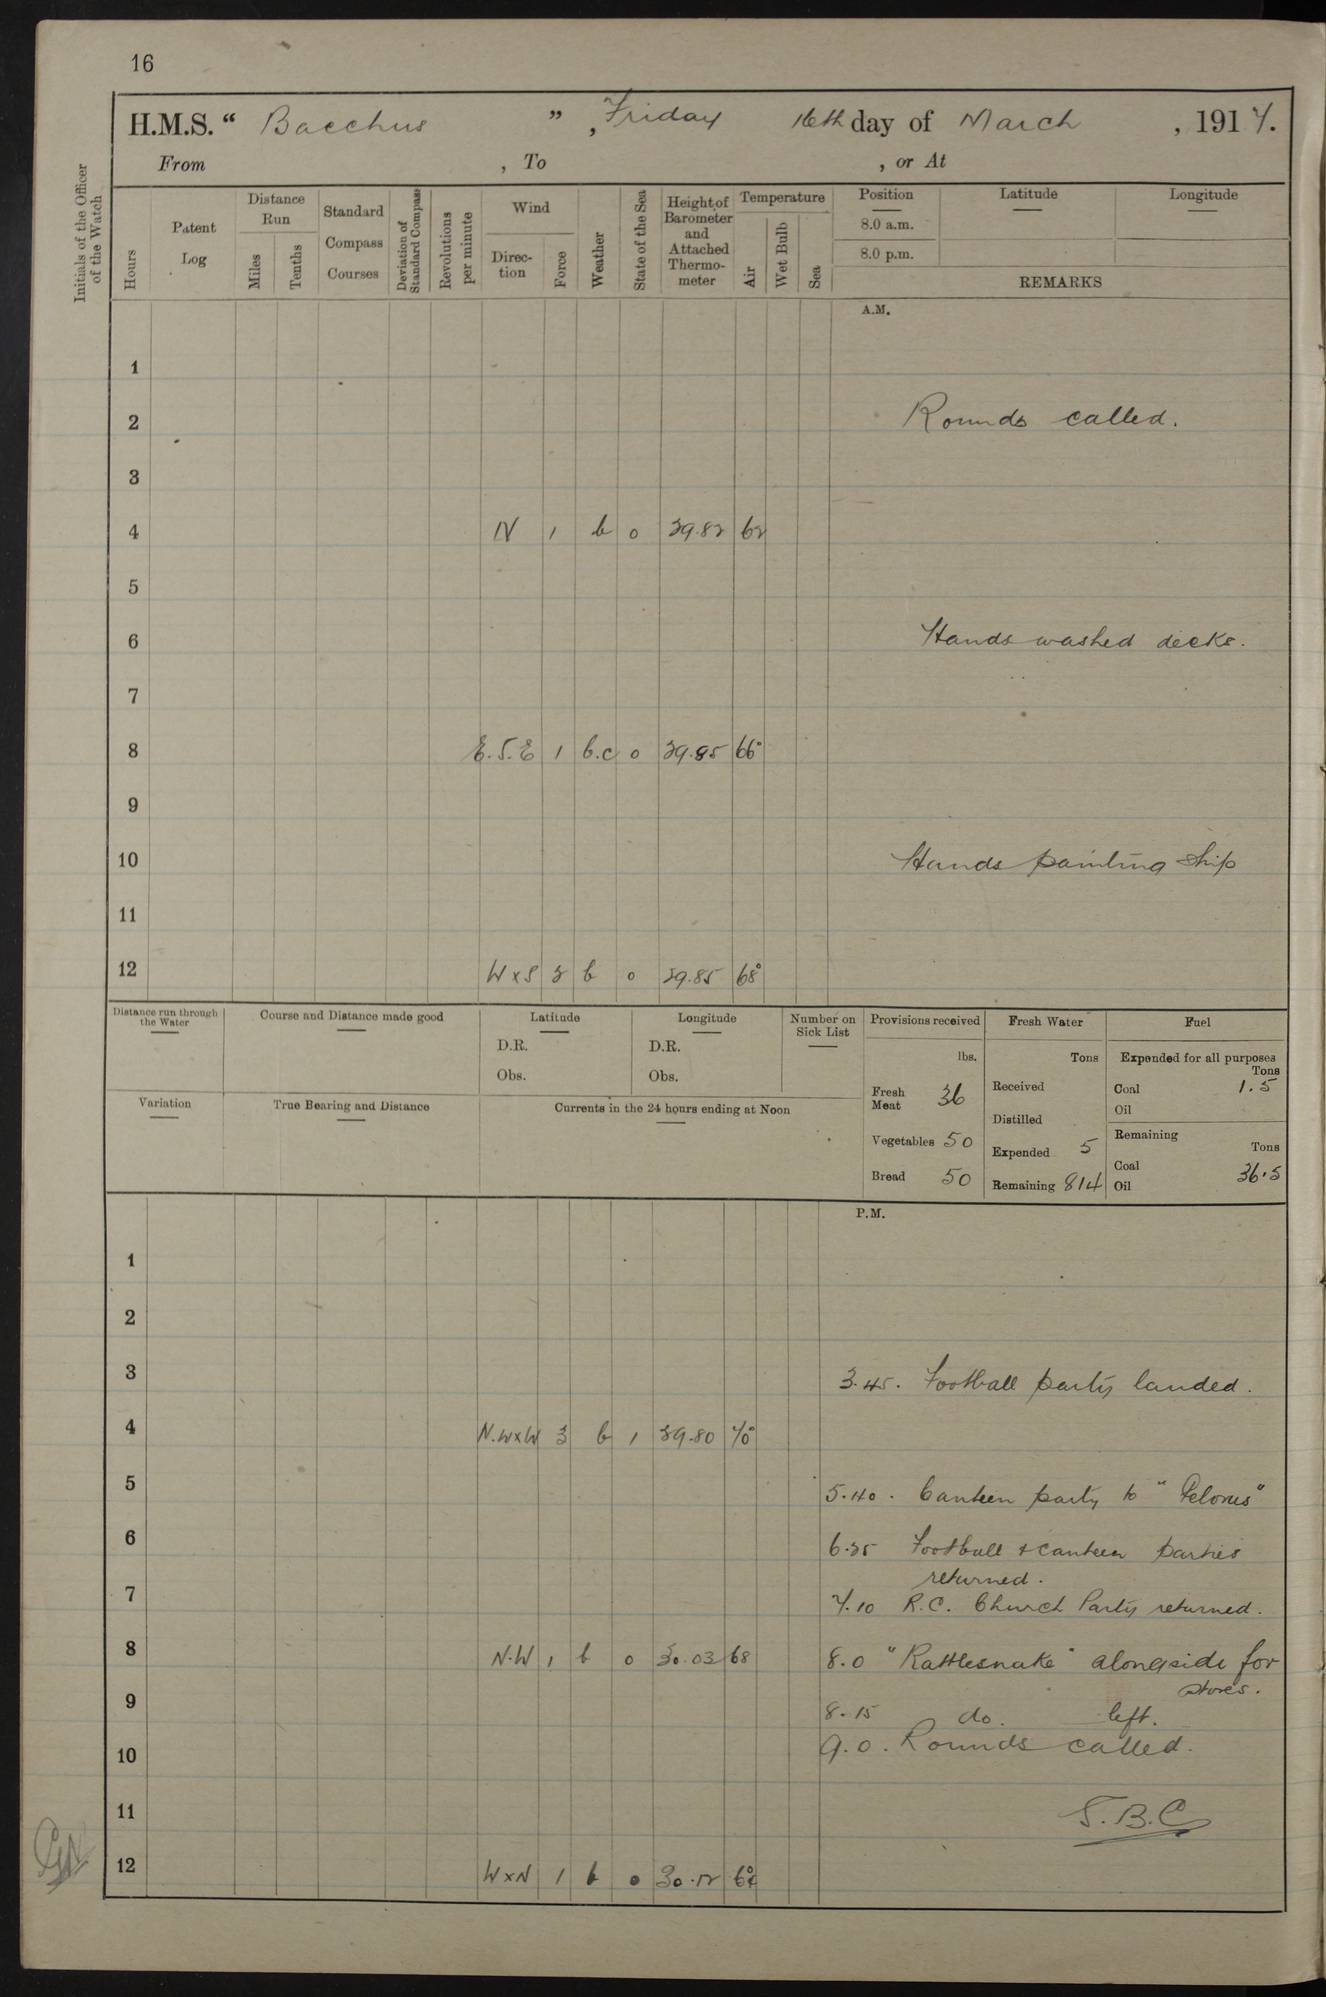 16
H.M.S. “ Bacchus ” , Friday 16th day of March , 1917.
From , To , or At
Initials of the Officer of the Watch
Hours
Patent Log
Distance Run
Miles
Tenths
Standard Compass Courses
Deviation of Standard Compass
Revolutions per minute
Wind
Direc-tion
Force
Weather
State of the Sea
Height of Barometer and Attached Thermo-meter
Temperature
Air
Wet Bulb
Sea
Position Latitude Longitude
8.0 a.m.
8.0 p.m.
REMARKS
A.M.
1
2 Rounds called.
3
4 N 1 b 0 29.82 62
5
6 Hands washed decks.
7
8 E.S.E 1 b.c 0 29.85 66°
9
10 Hands painting ship
11
12 W x S 2 b 0 29.85 68°
Distance run through the Water
Course and Distance made good
Latitude
D.R.
Obs.
Longitude
D.R.
Obs.
Number on Sick List
Variation
True Bearing and Distance
Currents in the 24 hours ending at Noon
Provisions received
lbs.
Fresh Meat 36
Vegetables 50
Bread 50
Fresh Water
Tons
Received
Distilled
Expended 5
Remaining 814
Fuel
Expended for all purposes
Tons
Coal 1.5
Oil
Remaining
Tons
Coal 36.5
Oil
P.M.
1
2
3 3.45. Football party landed.
4 N.W x W 3 b 1 29.80 70°
5 5.40. Canteen party to "Pelorus"
6 6.25 Football & canteen parties
returned.
7 7.10 R.C. Church Party returned.
8 N.W 1 b 0 30.03 68 8.0 "Rattlesnake" alongside for
stores.
9 8.15 do. left.
10 9.0. Rounds called.
11 S.B.C
12 W x N 1 b 0 30.12